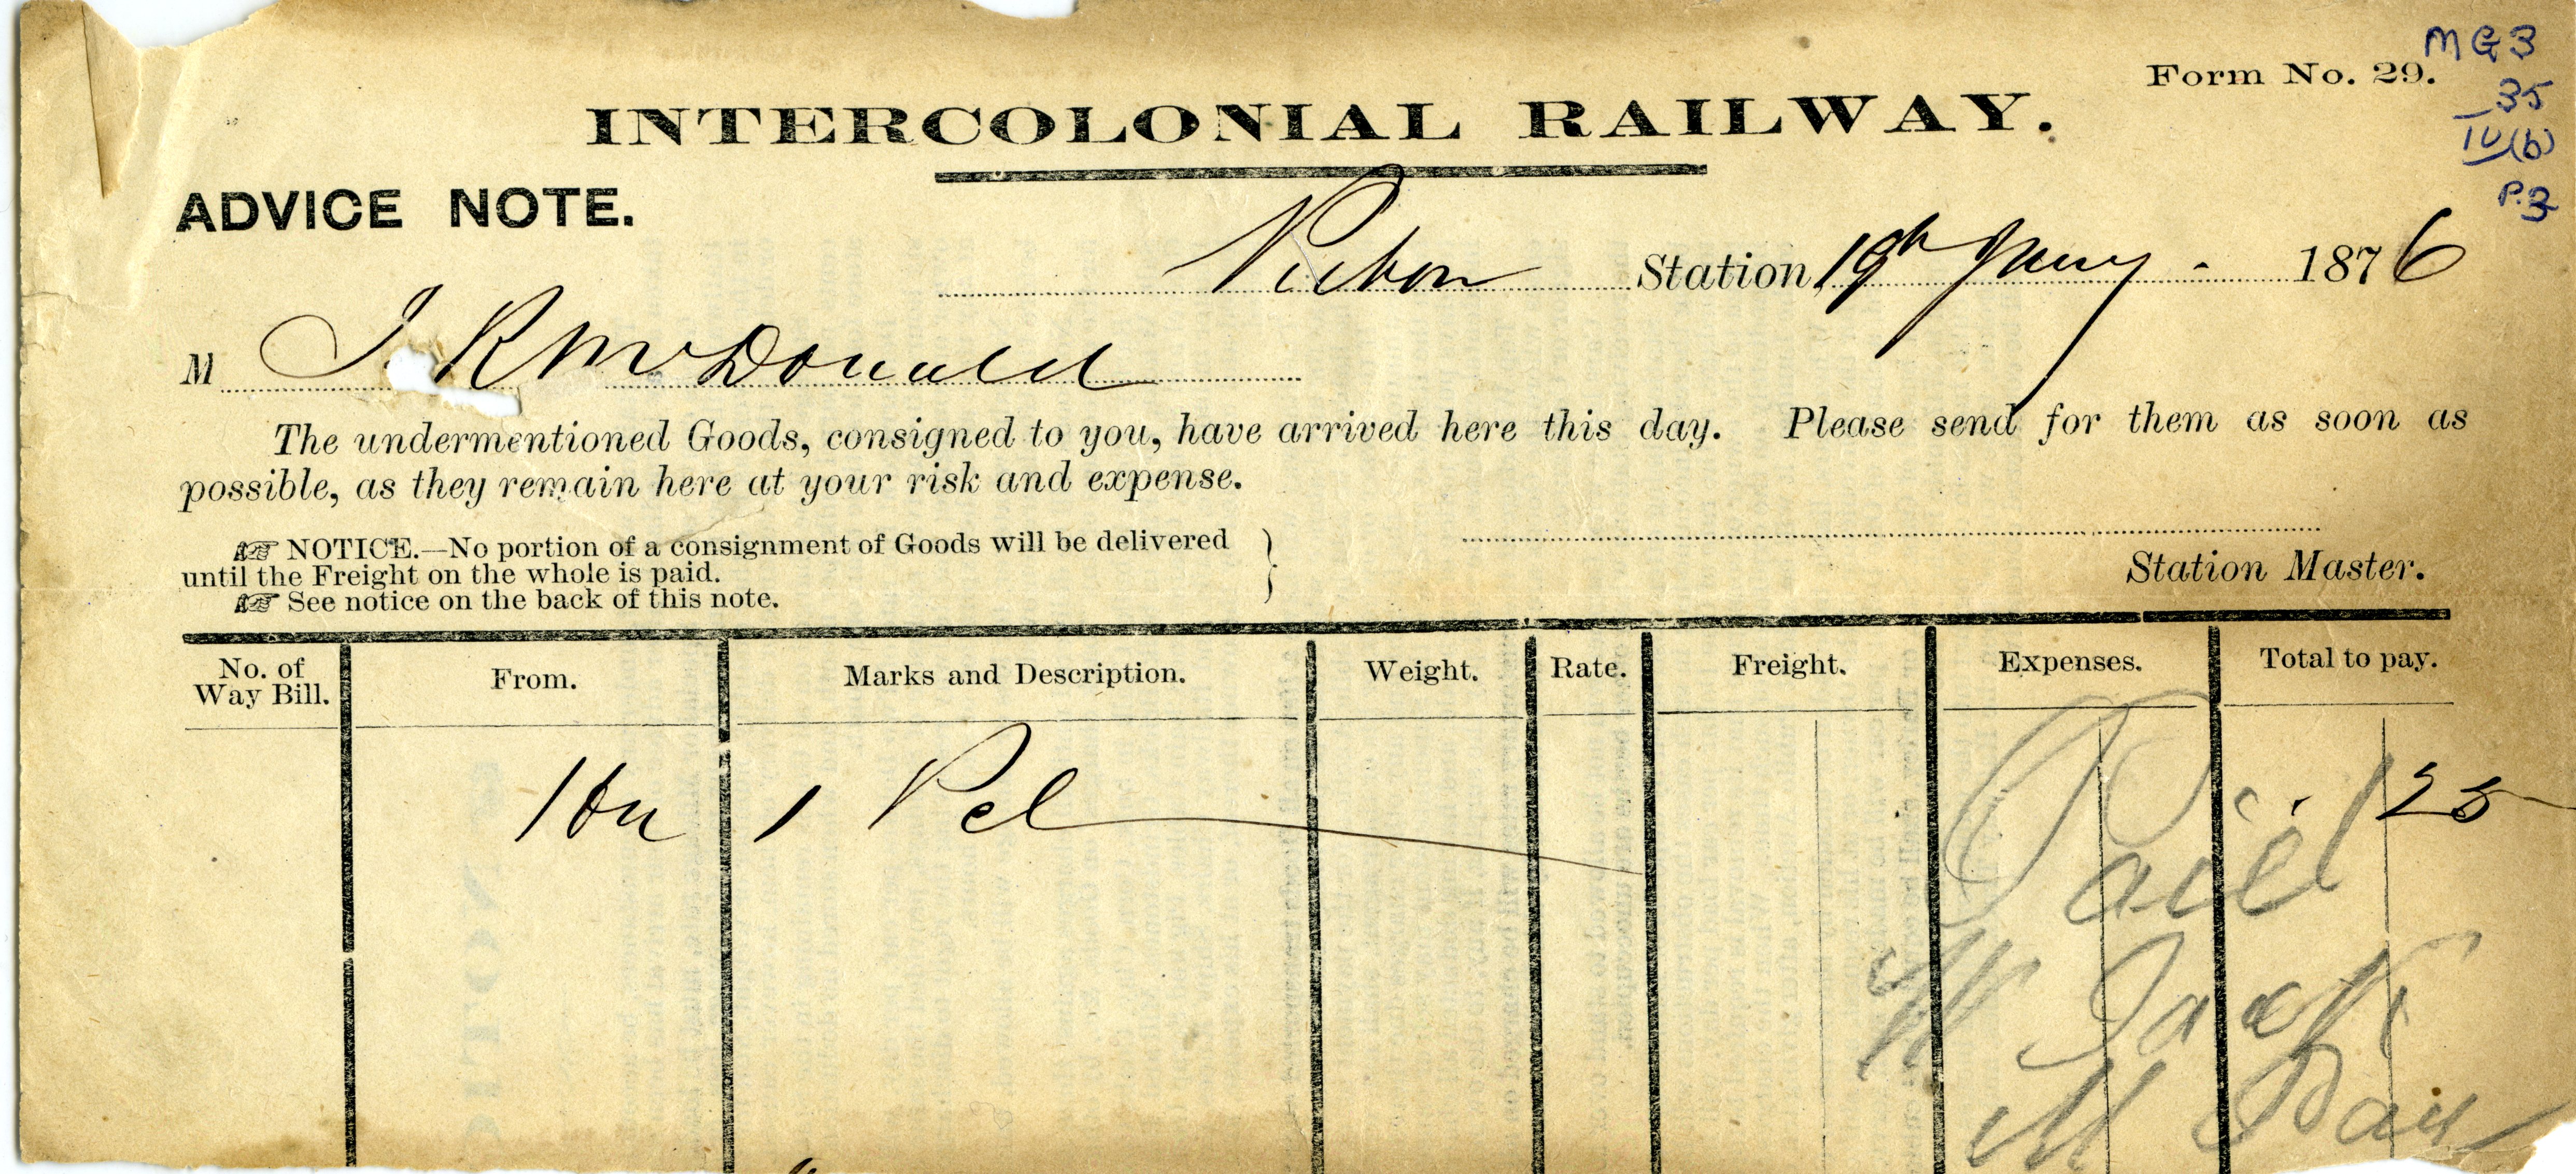 MG3
35
IV(b)
P.3
Form No. 29.
INTERCOLONIAL RAILWAY.
ADVICE NOTE.
Pictou Station, 19th Jany. 1876
M J. R McDonald
The undermentioned Goods, consigned to you, have arrived here this day. Please send for them as soon as
possible, as they remain here at your risk and expense.
☞ NOTICE.—No portion of a consignment of Goods will be delivered
until the Freight on the whole is paid.
☞ See notice on the back of this note.
Station Master.
No. of Way Bill. From. Marks and Description. Weight. Rate. Freight. Expenses. Total to pay.
1 Pcl 25
Paid
W Jack
M